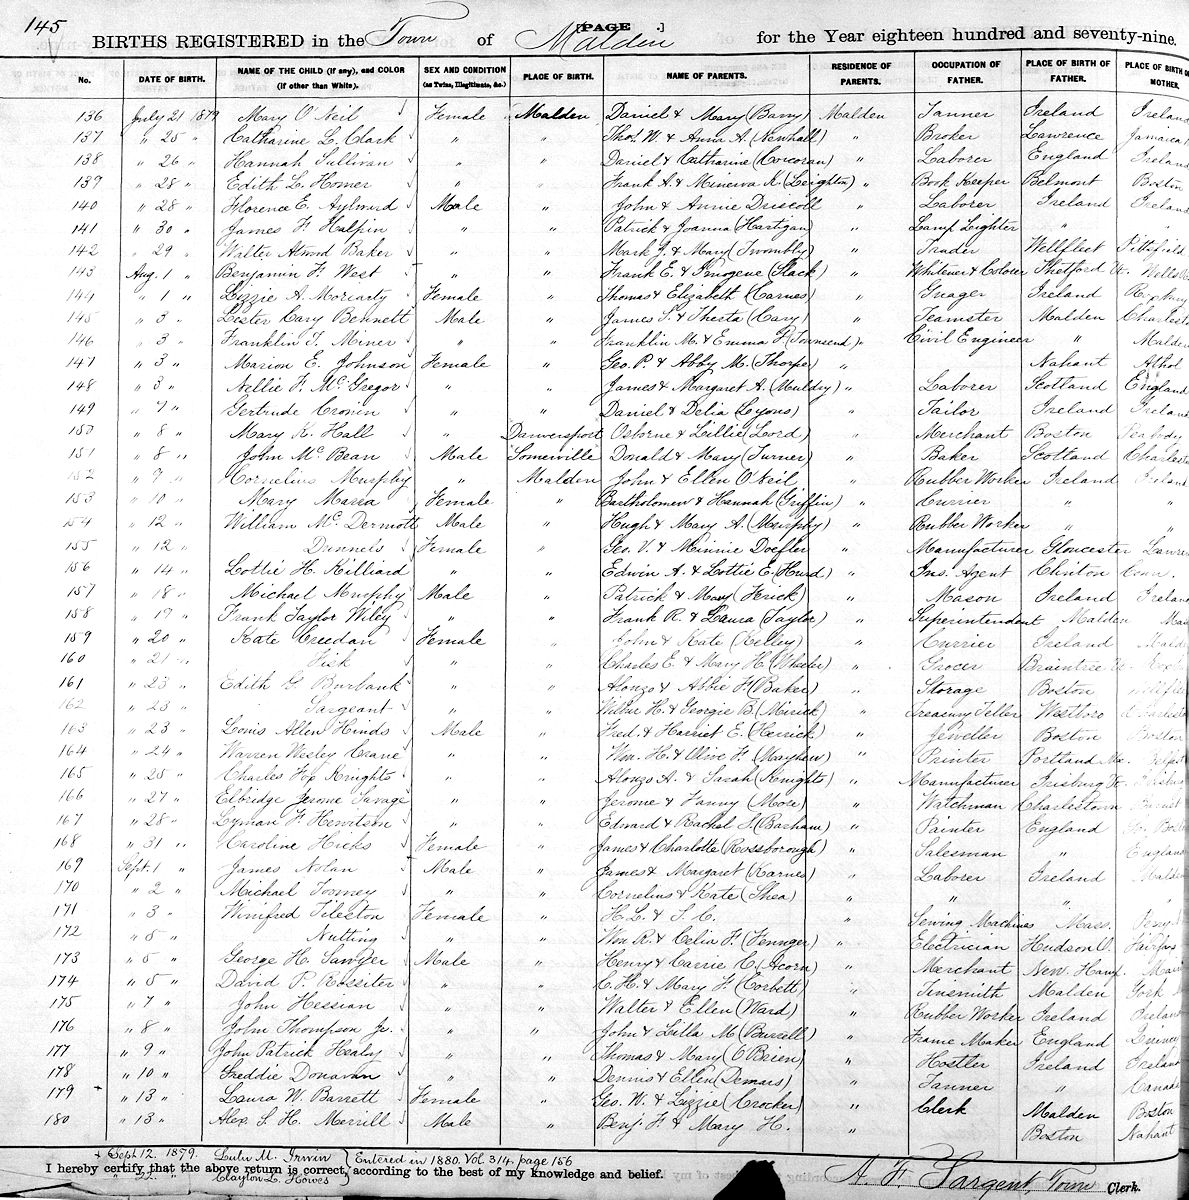 145
[PAGE .]
BIRTHS REGISTERED in the Town of Malden for the Year eighteen hundred and seventy-nine.
No. DATE OF BIRTH. NAME OF THE CHILD (if any), and COLOR (if other than White). SEX AND CONDITION (as Twins, Illegitimate, &c.) PLACE OF BIRTH. NAME OF PARENTS. RESIDENCE OF PARENTS. OCCUPATION OF FATHER. PLACE OF BIRTH OF FATHER. PLACE OF BIRTH OF MOTHER.
136 July 21 1879 Mary O'Neil Female Malden Daniel & Mary (Barry) Malden Tanner Ireland Ireland
137 " 25 " Catharine L. Clark " " Thos. W. & Anna A. (Newhall) " Broker Lawrence Jamaica
138 " 26 " Hannah Sullivan " " Daniel & Catharine (Corcoran) " Laborer England Ireland
139 " 28 " Edith L. Homer " " Frank A. & Minerva K. (Leighton) " Book Keeper Belmont Boston
140 " 28 " Florence E. Aylward Male " John & Annie Driscoll " Laborer Ireland Ireland
141 " 30 " James F. Halpin " " Patrick & Joanna (Hartigan) " Lamp Lighter " "
142 " 29 " Walter Atwood Baker " " Mark J. & Mary (Twombly) " Trader Wellfleet Pittsfield
143 Aug. 1 " Benjamin F. West " " Frank E. & Imogene (Slack) " Whitener & Colorer Thetford Vt. Wells
144 " 1 " Lizzie A. Moriarty Female " Thomas & Elizabeth (Carnes) " Greager Ireland Roxbury
145 " 3 " Lester Cary Bennett Male " James S. & Thesta (Cary) " Teamster Malden Charlest
146 " 3 " Franklin T. Miner " " Franklin M. & Emma P. (Townsend) " Civil Engineer " Malden
147 " 3 " Marion E. Johnson Female " Geo. P. & Abby M. (Thorpe) " Nahant Athol
148 " 3 " Nellie F. McGregor " " James & Margaret A. (Muldry) " Laborer Scotland England
149 " 7 " Gertrude Cronin " " Daniel & Delia (Lyons) " Tailor Ireland Ireland
150 " 8 " Mary K. Hall " Danversport Osborne & Lillie (Lord) " Merchant Boston Peabody
151 " 8 " John McBean Male Somerville Donald & Mary (Turner) " Baker Scotland Charlest
152 " 9 " Cornelius Murphy " Malden John & Ellen O'Neil " Rubber Worker Ireland Ireland
153 " 10 " Mary Mara Female " Bartholomew & Hannah (Griffin) " Currier " "
154 " 12 " William McDermott Male " Hugh & Mary A. (Murphy) " Rubber Worker " "
155 " 12 " Dunnels Female " Geo. V. & Minnie Doefler " Manufacturer Gloucester Lawren
156 " 14 " Lottie H. Killiard " " Edwin A. & Lottie E. (Hurd) " Ins. Agent Clinton Conn.
157 " 18 " Michael Murphy Male " Patrick & Mary (Frick) " Mason Ireland Ireland
158 " 17 " Frank Taylor Wiley " " Frank R. & Laura (Taylor) " Superintendent Malden
159 " 20 " Kate Creedan Female " John & Kate (Kelley) " Currier Ireland Malden
160 " 21 " Fisk " " Charles E. & Mary H. (Wheeler) " Grocer Braintree
161 " 23 " Edith G. Burbank " " Alonzo & Abbie F. (Baker) " Storage Boston
162 " 23 " Sargeant " " Wilbur H. & Georgie B. (Mirick) " Treasury Teller Westboro
163 " 23 " Louis Allen Hinds Male " Fred. & Harriet E. (Herrick) " Jeweller Boston Boston
164 " 24 " Warren Wesley Crane " " Wm. H. & Olive F. (Mayhew) " Printer Portland Me. Belfast
165 " 25 " Charles Fox Knights " " Alonzo A. & Sarah (Knights) " Manufacturer
166 " 27 " Elbridge Jerome Savage " " Jerome & Fanny (More) " Watchman Charlestown
167 " 28 " Lyman F. Hewitson " " Edward & Rachel S. (Basham) " Painter England
168 " 31 " Caroline Hicks Female " James & Charlotte (Rossborough) " Salesman " England
169 Sept. 1 " James Nolan Male " James & Margaret (Karnes) " Laborer Ireland Malden
170 " 2 " Michael Toomey " " Cornelius & Kate (Shea) " " " "
171 " 3 " Winifred Tileston Female " H. L. & S. C. " Sewing Machines Mass.
172 " 5 " Nutting " " Wm R. & Celia F. (Fennger) " Electrician Hudson O. Fairfax
173 " 5 " George H. Sawyer Male " Henry & Carrie C. (Acorn) " Merchant New. Hamp.
174 " 5 " David P. Rossiter " " C. H. & Mary F. (Corbett) " Tinsmith Malden York
175 " 7 " John Hessian " " Walter & Ellen (Ward) " Rubber Worker Ireland Ireland
176 " 8 " John Thompson Jr. " " John & Lilla M. (Burrell) " Frame Maker England Quincy
177 " 9 " John Patrick Healy " " Thomas & Mary (O'Brien) " Hostler Ireland Ireland
178 " 10 " Freddie Donavan " " Dennis & Ellen (Demars) " Tanner " Canada
179 + " 13 " Laura W. Barrett Female " Geo. W. & Lizzie (Crocker) " Clerk Malden Boston
180 " 13 " Alex. S. H. Merrill Male " Benj. F. & Mary H. " Boston Nahant
+ Sept 12. 1879. Lulu M. Irwin } Entered in 1880. Vol. 314. page 156
" 22. " Clayton L. Howes }
I hereby certify that the above return is correct, according to the best of my knowledge and belief.
A. F. Sargent, Town Clerk.